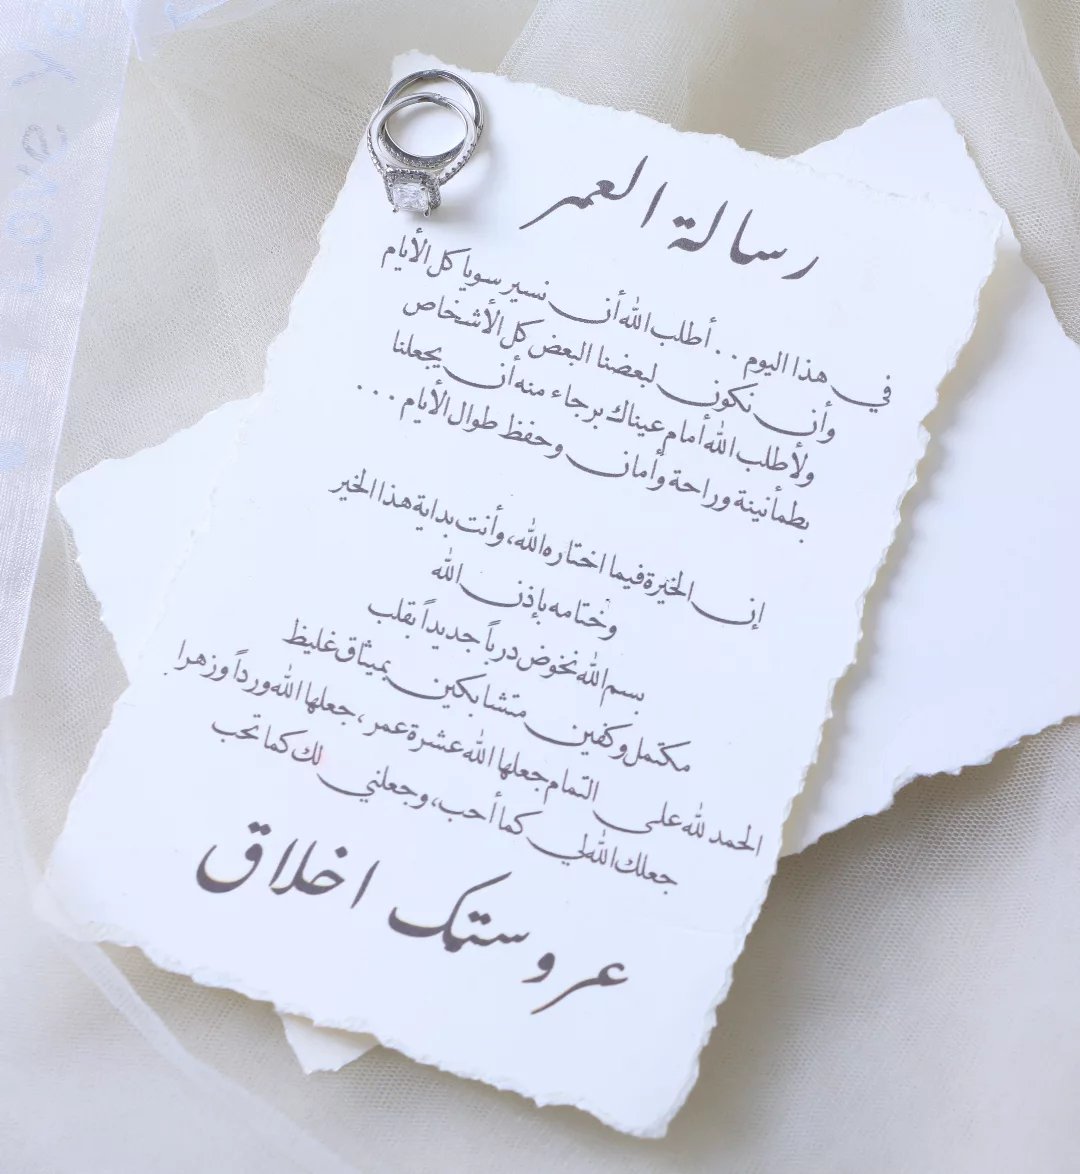 رسالة العمر
في هذا اليوم.. أطلب الله أن نسير سويا كل الأيام
وأن نكون لبعضنا البعض كل الأشخاص
ولأطلب الله أمام عيناك برجاء منه أن يجعلنا
بطمأنينة وراحة وأمان وحفظ طوال الأيام...
إن الخيرة فيما اختاره الله، وأنت بداية هذا الخير
وختامه بإذن الله
بسم الله نخوض درباً جديداً بقلب
مكتمل وكفين متشابكين بميثاق غليظ
الحمد لله على التمام جعلها الله عشرة عمر، جعلها الله ورداً وزهرا
جعلك الله لي كما أحب، وجعلني لك كما تحب
عروستك اخلاق
LOVE